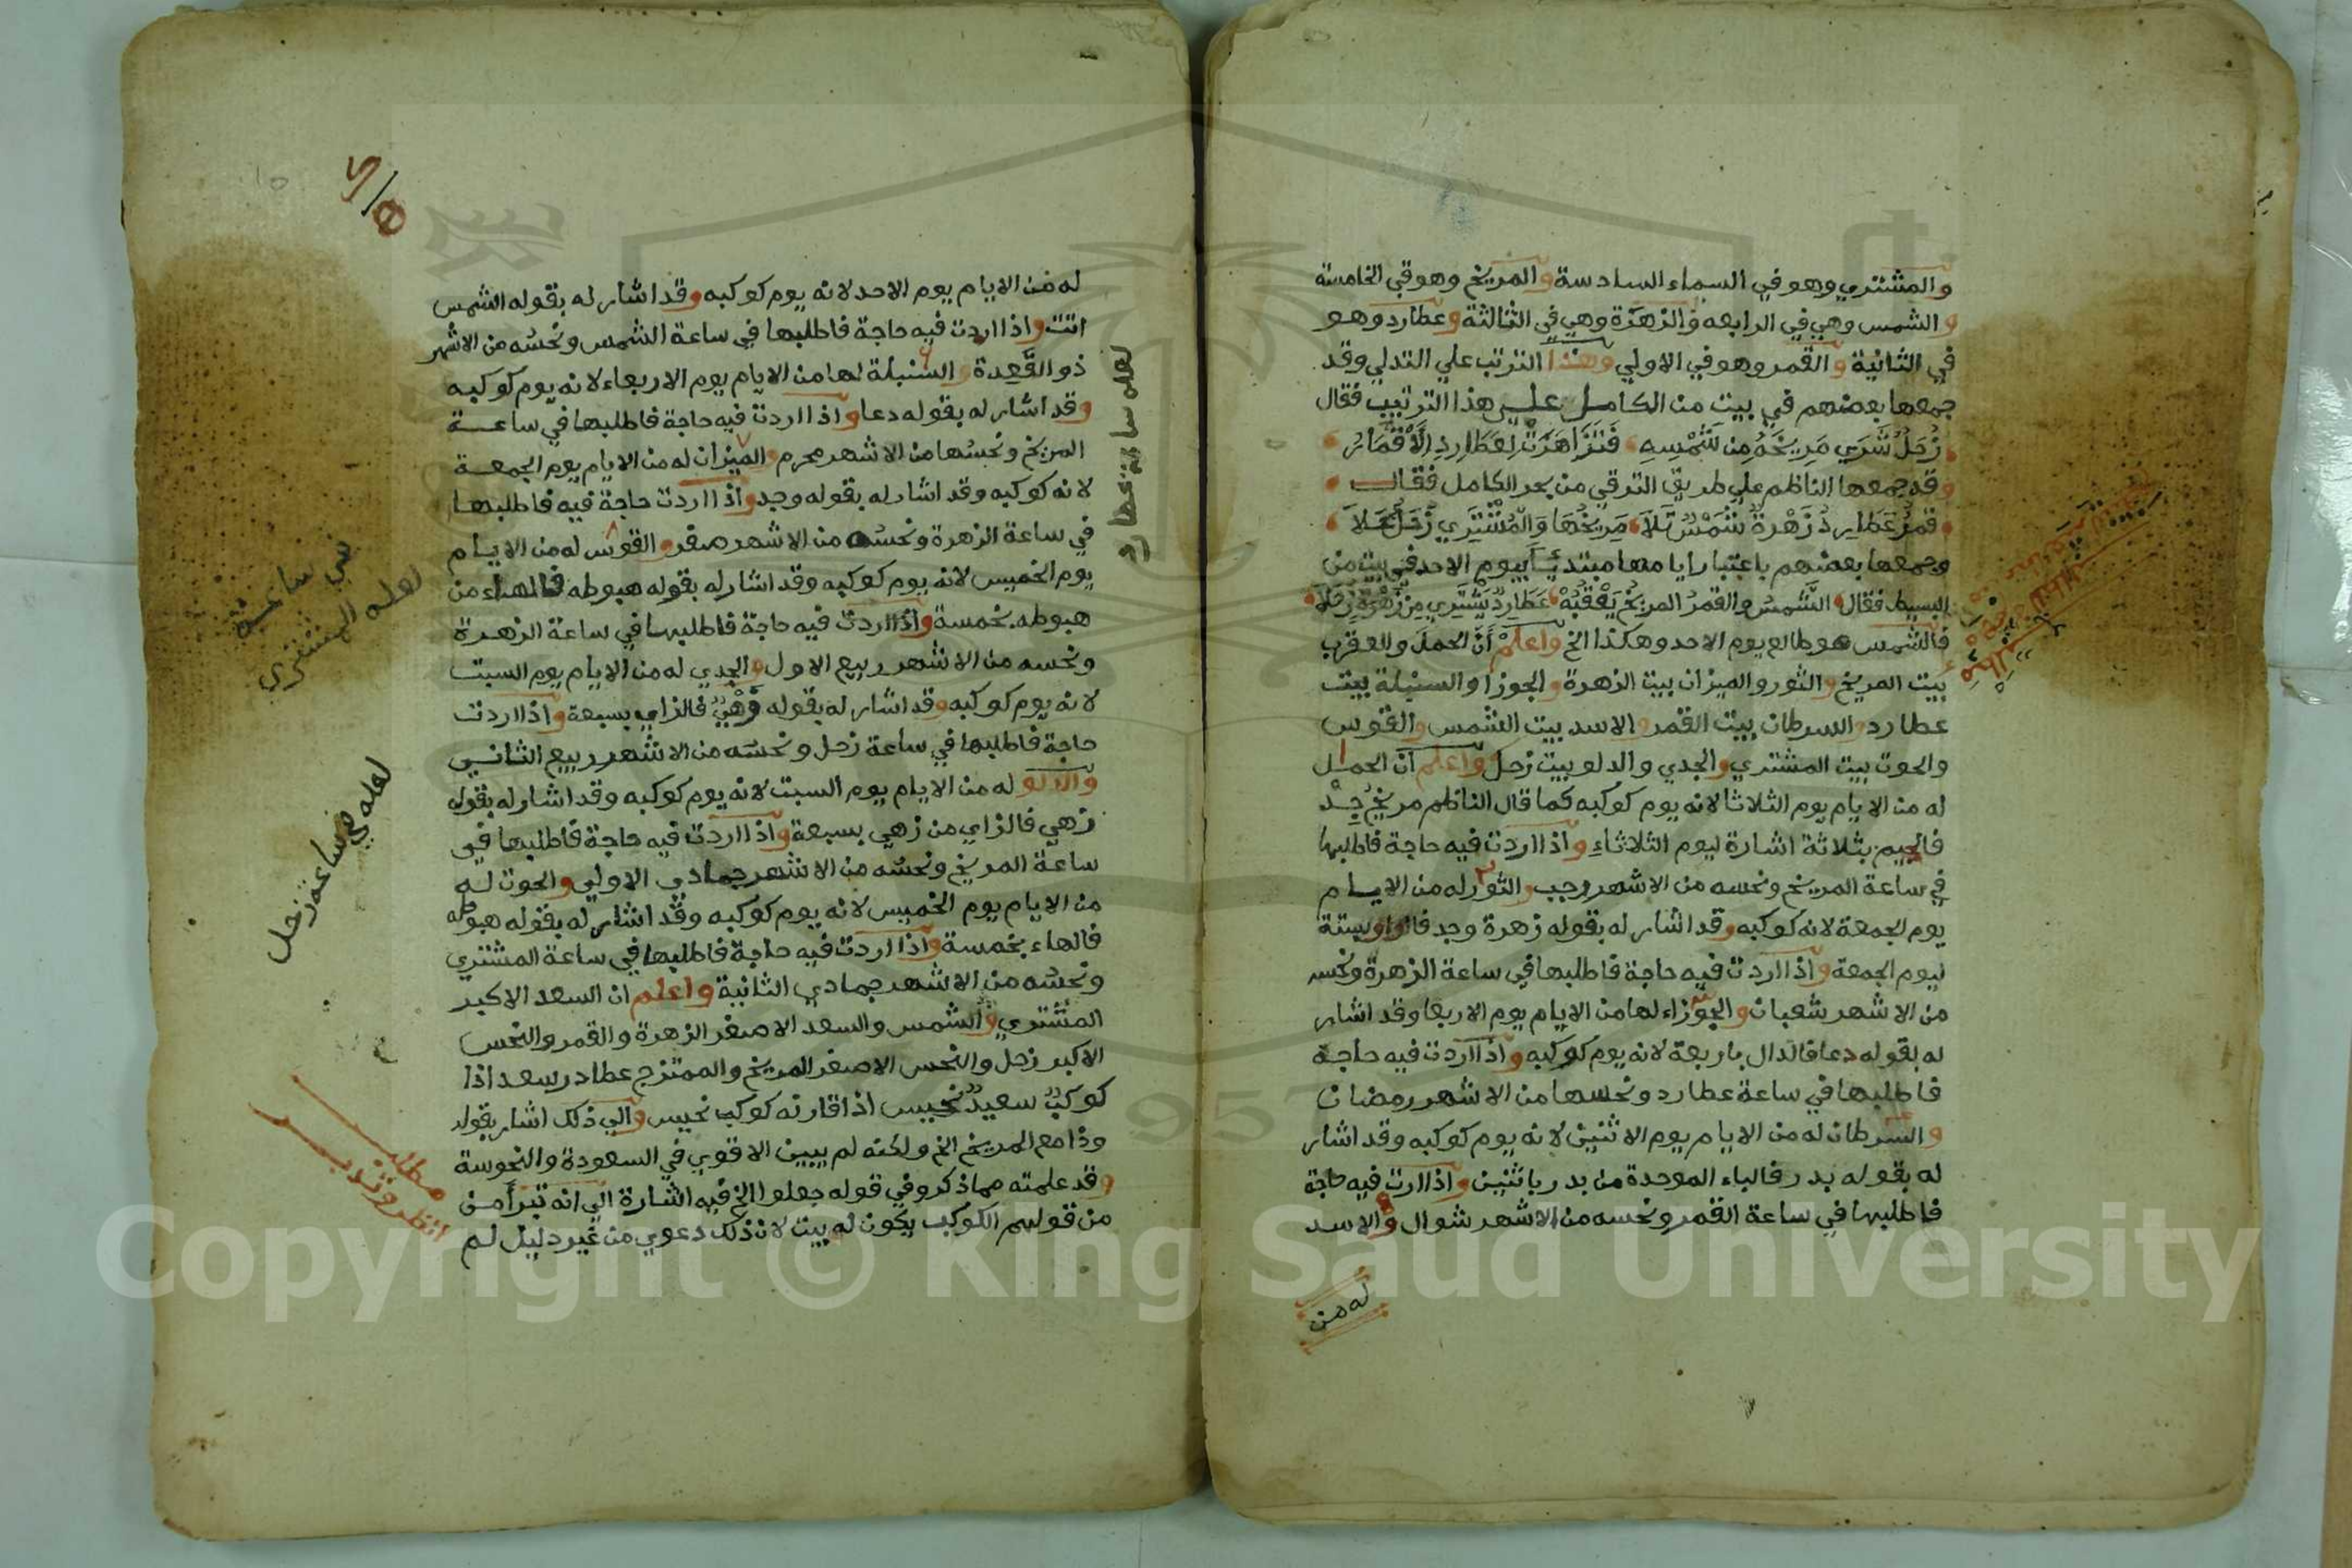 والمشتري وهو في السماء السادسة والمريخ وهو في الخامسة
والشمس وهي في الرابعه والزهرة وهي في الثالثة وعطارد وهو
في الثانية والقمر وهو في الاولي وهذا الترتب علي التدلي وقد
جمعها بعضهم في بيت من الكامل علي هذا الترتيب فقال
زُحَلُ شَرَي مَرِيخَهُ مِن شَمْسِهِ فَتَزَاهَرَتْ لِعَطَارِدِ الْأَقْمَارُ
وقد جمعها الناظم علي طريق الترقي من بحر الكامل فقال
قمرُ عَطَارِدُ زَهْرةٌ شَمْسٌ تَلَا مَرِيخُهَا وَالْمُشْتَرِي زُحَلٌ عَلَا
وجمعها بعضهم باعتبار ايامها مبتدئيا بيوم الاحد في بيت من
البسيط فقال الشَّمسُ والقمرُ المريخُ يَعْقُبُهْ عَطَارِدٌ يَشْتَرِي مِن زُهْرَةٍ زُحَلَا
فالشمس هو طالع يوم الاحد وهكذا الخ واعلم أنَّ الحمل والعقرب
بيت المريخ والثور والميزان بيت الزهرة والجوزا والسنبلة بيت
عطارد والسرطان بيت القمر والاسد بيت الشمس والقوس
والحوت بيت المشتري والجدي والدلو بيت زحل واعلم ان الحمل
له من الايام يوم الثلاثا لانه يوم كوكبه كما قال الناظم مريخ جِدْ
فالجيم بثلاثة اشارة ليوم الثلاثاءِ واذا اردت فيه حاجة فاطلبها
في ساعة المريخ ونحسه من الاشهر رجب والثور له من الايام
يوم الجمعة لانه كوكبه وقد اشار له بقوله زهرة وجد فالواو بستة
ليوم الجمعة واذا اردت فيه حاجة فاطلبها في ساعة الزهرة ونحسه
من الاشهر شعبان والجوزاء لها من الايام يوم الاربعا وقد اشار
له بقوله دعا فالدال باربعة لانه يوم كوكبه واذا اردت فيه حاجة
فاطلبها في ساعة عطارد ونحسها من الاشهر رمضان
والسرطان له من الايام يوم الاثنين لانه يوم كوكبه وقد اشار
له بقوله بدر فالباء الموحدة من بدر باثنين واذا اردت فيه حاجة
فاطلبها في ساعة القمر ونحسه من الاشهر شوال والاسد
له من
له من الايام يوم الاحد لانه يوم كوكبه وقد اشار له بقوله الشمس
اتت واذا اردت فيه حاجة فاطلبها في ساعة الشمس ونحسُه من الاشهر
ذو القَعِدة والسنبلة لها من الايام يوم الاربعاء لانه يوم كوكبه
وقد اشار له بقوله دعا واذا اردت فيه حاجة فاطلبها في ساعة
المريخ ونحسُها من الاشهر محرم والميزان له من الايام يوم الجمعة
لانه كوكبه وقد اشار له بقوله وجد واذا اردت حاجة فيه فاطلبها
في ساعة الزهرة ونحسُه من الاشهر صفر والقوس له من الايام
يوم الخميس لانه يوم كوكبه وقد اشار له بقوله هبوطه فالهاء من
هبوطه بخمسة واذا اردت فيه حاجة فاطلبها في ساعة الزهرة
ونحسه من الاشهر ربيع الاول والجدي له من الايام يوم السبت
لانه يوم كوكبه وقد اشار له بقوله زُهيٌ فالزاي بسبعة واذا اردت
حاجة فاطلبها في ساعة زحل ونحسَه من الاشهر ربيع الثاني
والدلو له من الايام يوم السبت لانه يوم كوكبه وقد اشار له بقوله
زهي فالزاي من زهي بسبعة واذا اردت فيه حاجة فاطلبها في
ساعة المريخ ونحسُه من الاشهر جمادي الاولي والحوت له
من الايام يوم الخميس لانه يوم كوكبه وقد اشار له بقوله هبوطه
فالهاء بخمسة واذا اردت فيه حاجة فاطلبها في ساعة المشتري
ونحسُه من الاشهر جمادي الثانية واعلم ان السعد الاكبر
المشتري والشمس والسعد الاصغر الزهرة والقمر والنحس
الاكبر زحل والنحس الاصغر المريخ والممتزج عطادر سعد اذا
كوكبٌ سعيدٌ نحيس اذا قارنه كوكب نحيس والي ذلك اشار بقوله
وذا مع المريخ الخ ولكنه لم يبين الاقوي في السعودة والنحوسة
وقد علمته مما ذكر وفي قوله جعلوا الخ فيه اشارة الي انه تبرأ من
من قولهم الكوكب يكون له بيت لان ذلك دعوي من غير دليل لم
لعله ساعة عطارد
في ساعة
لعله المشتري
لعله في ساعة زحل
مطلب
انظر وتدبر
Copyright © King Saud University
957